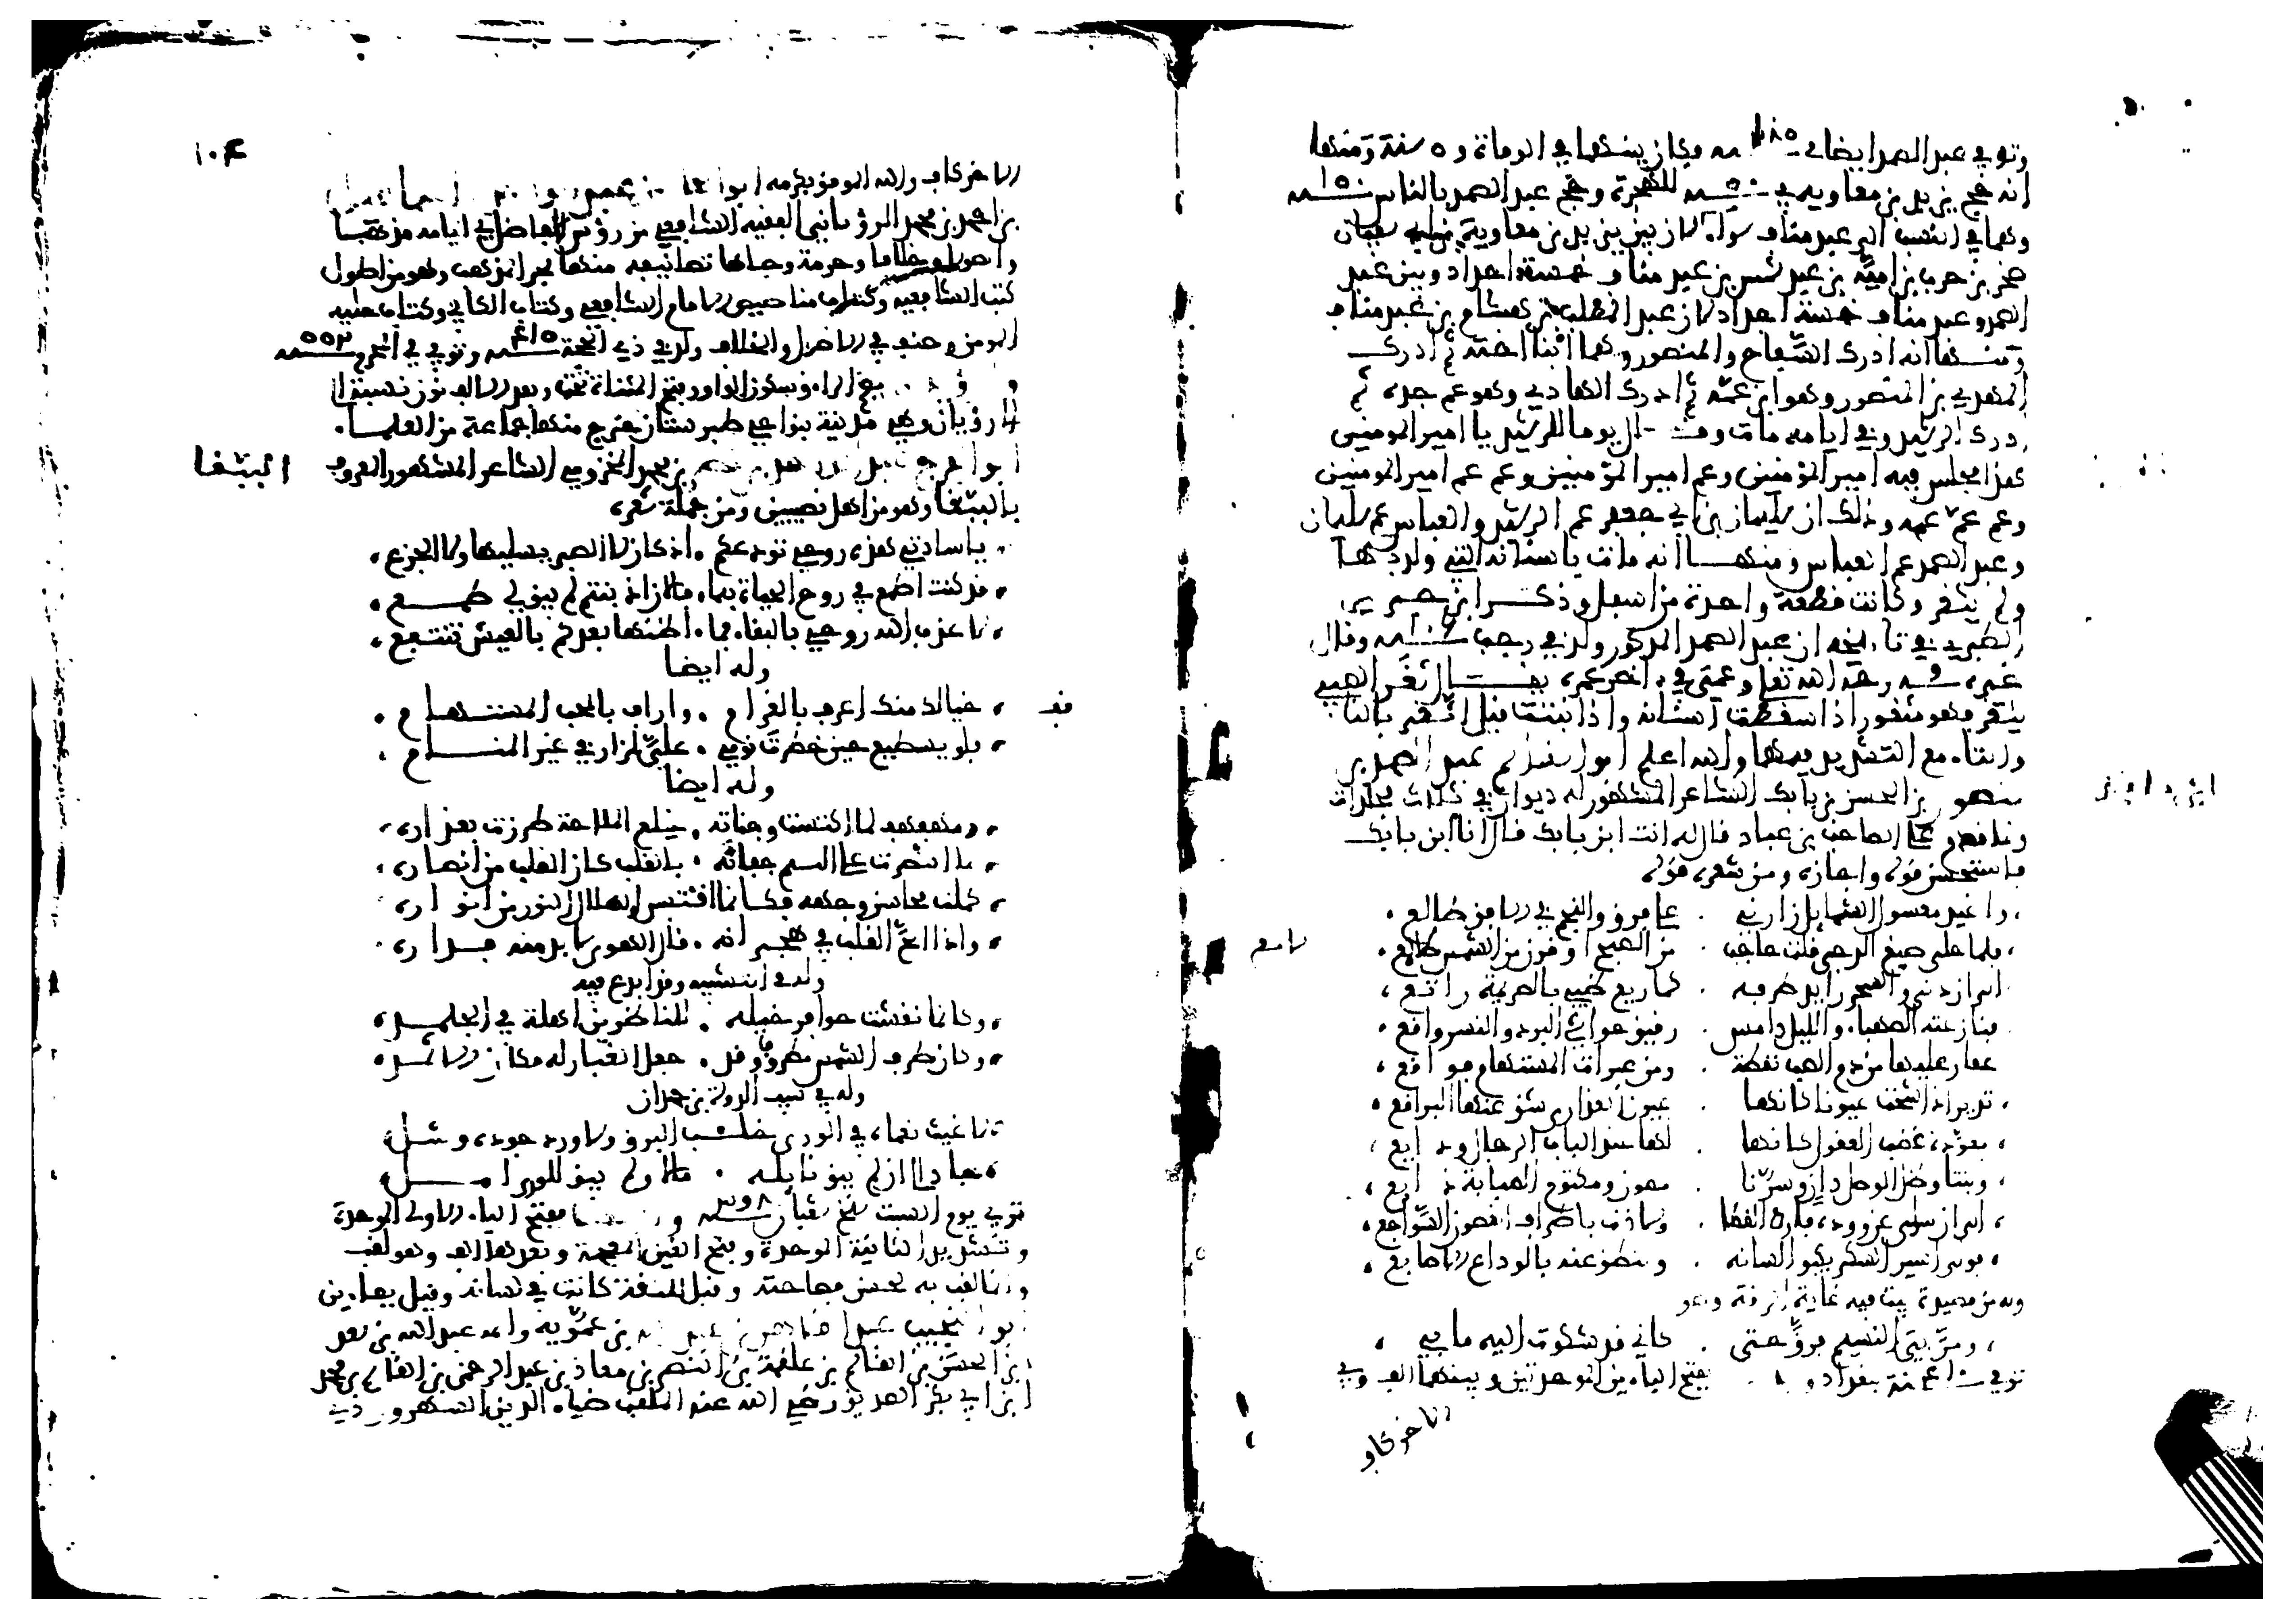 وتوفي عبد الصمد ايضا في سنة ١٨٥ فكان بينهما في الوفاة ٥ سنة ومنها
انه حج يزيد بن معاوية في سنة ٥٠ للهجرة وحج عبد الصمد بالناس سنة ١٥٠
وهما في النسب الى عبد مناف سواء لان يزيد بن معاوية بن ابي سفيان
صخر بن حرب بن امية بن عبد شمس بن عبد مناف خمسة اجداد وبين عبد
الصمد وعبد مناف خمسة اجداد لان عبد المطلب بن هشام بن عبد مناف
ومنها انه ادرك السفاح والمنصور وهما ابنا اخيه ثم ادرك
المهدي بن المنصور وهو ابن عمه ثم ادرك الهادي وهو عم جده ثم
ادرك الرشيد وفي ايامه مات وقال يوما للرشيد يا امير المومنين
هذا مجلس فيه امير المؤمنين وعم امير المؤمنين وعم عم امير المومنين
وعم عم عمه وذلك ان سليمان بن ابي جعفر عم الرشيد والعباس عم سليمان
وعبد الصمد عم العباس ومنها انه مات باسنانه التي ولد بها
ولم يثغر وكانت قطعة واحدة من اسفل وذكر ابن جرير
الطبري في تاريخه ان عبد الصمد المذكور ولد في رجب سنة وقال
غيره رحمه الله تعلى وعمي في اخر عمره يقال ثغر الصبي
يثغر فهو مثغور اذا سقطت اسنانه واذا نبتت قيل اثغر بالتا
والثاء مع التشديد فيهما والله اعلم ابو القاسم عبد الصمد بن
منصور بن الحسن بن بابك الشاعر المشهور له ديوان في ثلاث مجلدات
ولما قدم على الصاحب بن عباد قال له انت ابن بابك فقال انا ابن بابك
فاستحسن قوله واجازه ومن شعره قوله
واغيد معسول الشمايل زارني . على فرق والنجم في الافق طالع
فلما جلى صبغ الدجى قلت حاجب . من الصبح او قرن من الشمس طالع
الى ان دنى والسحر رايد طرفه . كما ريع ظبي بالصريمة راتع
فنازعته الصهباء والليل دامس . رقيق حواشي البرد والنسر واقع
عقار عليها من دم الصب نفطة . ومن عبرات المستهام فواقع
تدير اذا شجت عيونا كانها . عيون العذارى شق عنها البراقع
معودة غصب العقول كانها . لها عند الباب الرجال ودايع
وبتنا وظل الوصل دان وسرنا . مصون ومكتوم الصبابة ذايع
الى ان سلى عن ورده فارط القطا . ولاذت باطراف الغصون السواجع
فولى اسير السكر يكبو لسانه . وتنطق عنه بالوداع الاصابع
وله من قصيدة بيت فيه غاية الرقة وهو
ومر بي النسيم فرق حتى . كاني قد شكوت اليه ما بي
توفي سنة ٤١٠ ببغداد بفتح الباءين الموحدتين وبينهما الف وفي
الاخر كاف
الاخر كاف والله الموفق بكرمه ابو
بن احمد بن محمد الروياني الفقيه الشافعي من رؤس الافاضل في ايامه مذهبا
واصولا وخلافا وحرمة وجاها تصانيفه منها بحر المذهب وهو من اطول
كتب الشافعية وكتاب مناصيص الامام الشافعي وكتاب الكافي وكتاب حلية
المومن وصنف في الاصول والخلاف ولد في ذي الحجة سنة ٤١٥ وتوفي في المحرم سنة ٥٥٢
بضم الراء وسكون الواو وفتح المثناة تحت وبعد الالف نون نسبة
الى رؤيان وهي مدينة بنواحي طبرستان خرج منها جماعة من العلماء
ابو الفرج عبد الواحد بن محمد المخزومي الشاعر المشهور المعروف
البيغا
بالببغا وهو من اهل نصيبين ومن جملة شعره
يا سادتي هذه روحي تودعكم . اذ كان لا الصبر يسليها ولا الجزع
قد كنت اطمع في روح الحياة لها . فالان اذ بنتم لم يبق لي طمع
لا عذب الله روحي بالبقاء فما . اظنها بعدكم بالعيش تنتفع
وله ايضا
خيالك منك اعرف بالغرام . واراف بالمحب المستهام
فلو يسطيع حين حظرت نومي . علي لزار في غير المنام
وله ايضا
ومهفهف لما اكتست وجناته . خلع الملاحة طرزت بعذاره
لما انتصرت على اليم جفائه . بالقلب كان القلب من انصاره
كملت محاسن وجهه فكانما اقتبس الهلال النور من انواره
واذا الح القلب في هجرانه . قال الهوى لا بد منه فداره
وله في التشبيه وقد ابدع فيه
وكانما نقشت حوافر خيله . للناظرين اهلة في الجلمد
وكان طرف الشمس مطروف وقد . جعل الغبار له مكان الاثمد
وله في سيف الدولة بن حمدان
لا غيث نعماه في الورى خلب البرق ولا ورد جوده وشل
جاد الى ان لم يبق نايله . مالا ولم يبق للورى امل
توفي يوم السبت سلخ شعبان سنة ٣٩٨ و بفتح الباء الاولى الموحدة
وتشديد الثانية الموحدة وفتح الغين المعجمة وبعدها الف وهو لقب
وانما لقب به لحسن فصاحته وقيل للثغة كانت في لسانه وقيل بفاءين
ابو النجيب عبد القاهر بن عبد الله بن عموية واسمه عبد الله بن سعد
بن الحسن بن القاسم بن علقمة بن النضر بن معاذ بن عبد الرحمن بن القاسم بن محمد
ابن ابي بكر الصديق رضي الله عنه الملقب ضياء الدين السهروردي